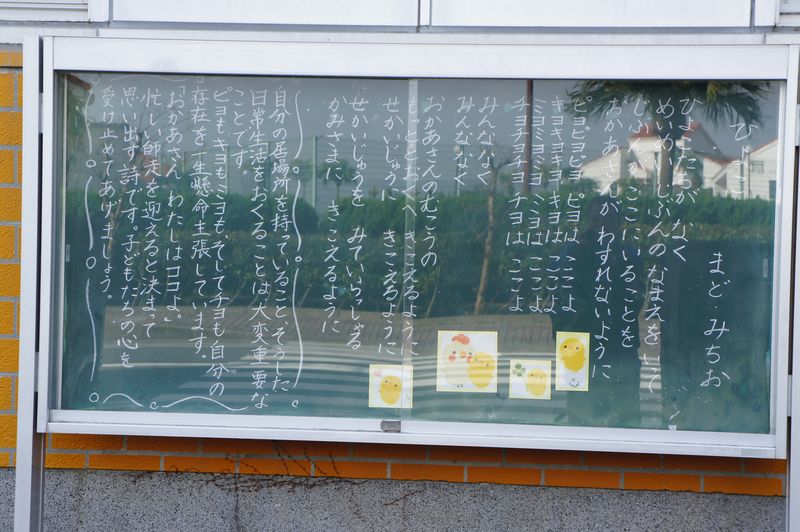 ひよこ
まど みちお
ひよこたちが なく
めいめい じぶんの なまえを いって
しんぱい ここに いることを
おかあさんが わすれないように
ピヨピヨピヨ ピヨは ここよ
キヨキヨキヨ キヨは ここよ
ミヨミヨミヨ ミヨは ここよ
チヨチヨチヨ チヨは ここよ
みんな なく
みんな なく
おかあさんの むこうの
もっと とおくへ きこえるように
せかいじゅうに きこえるように
せかいじゅうを みていらっしゃる
かみさまに きこえるように
自分の居場所を持っていること、そうした
日常生活をおくることは大変重要な
ことです。
ピヨもキヨもミヨも、そしてチヨも、自分の
存在を一生懸命主張しています。
「おかあさん、わたしはココよ。」
忙しい師走を迎えると決まって
思い出す詩です。子どもたちの心を
受け止めてあげましょう。